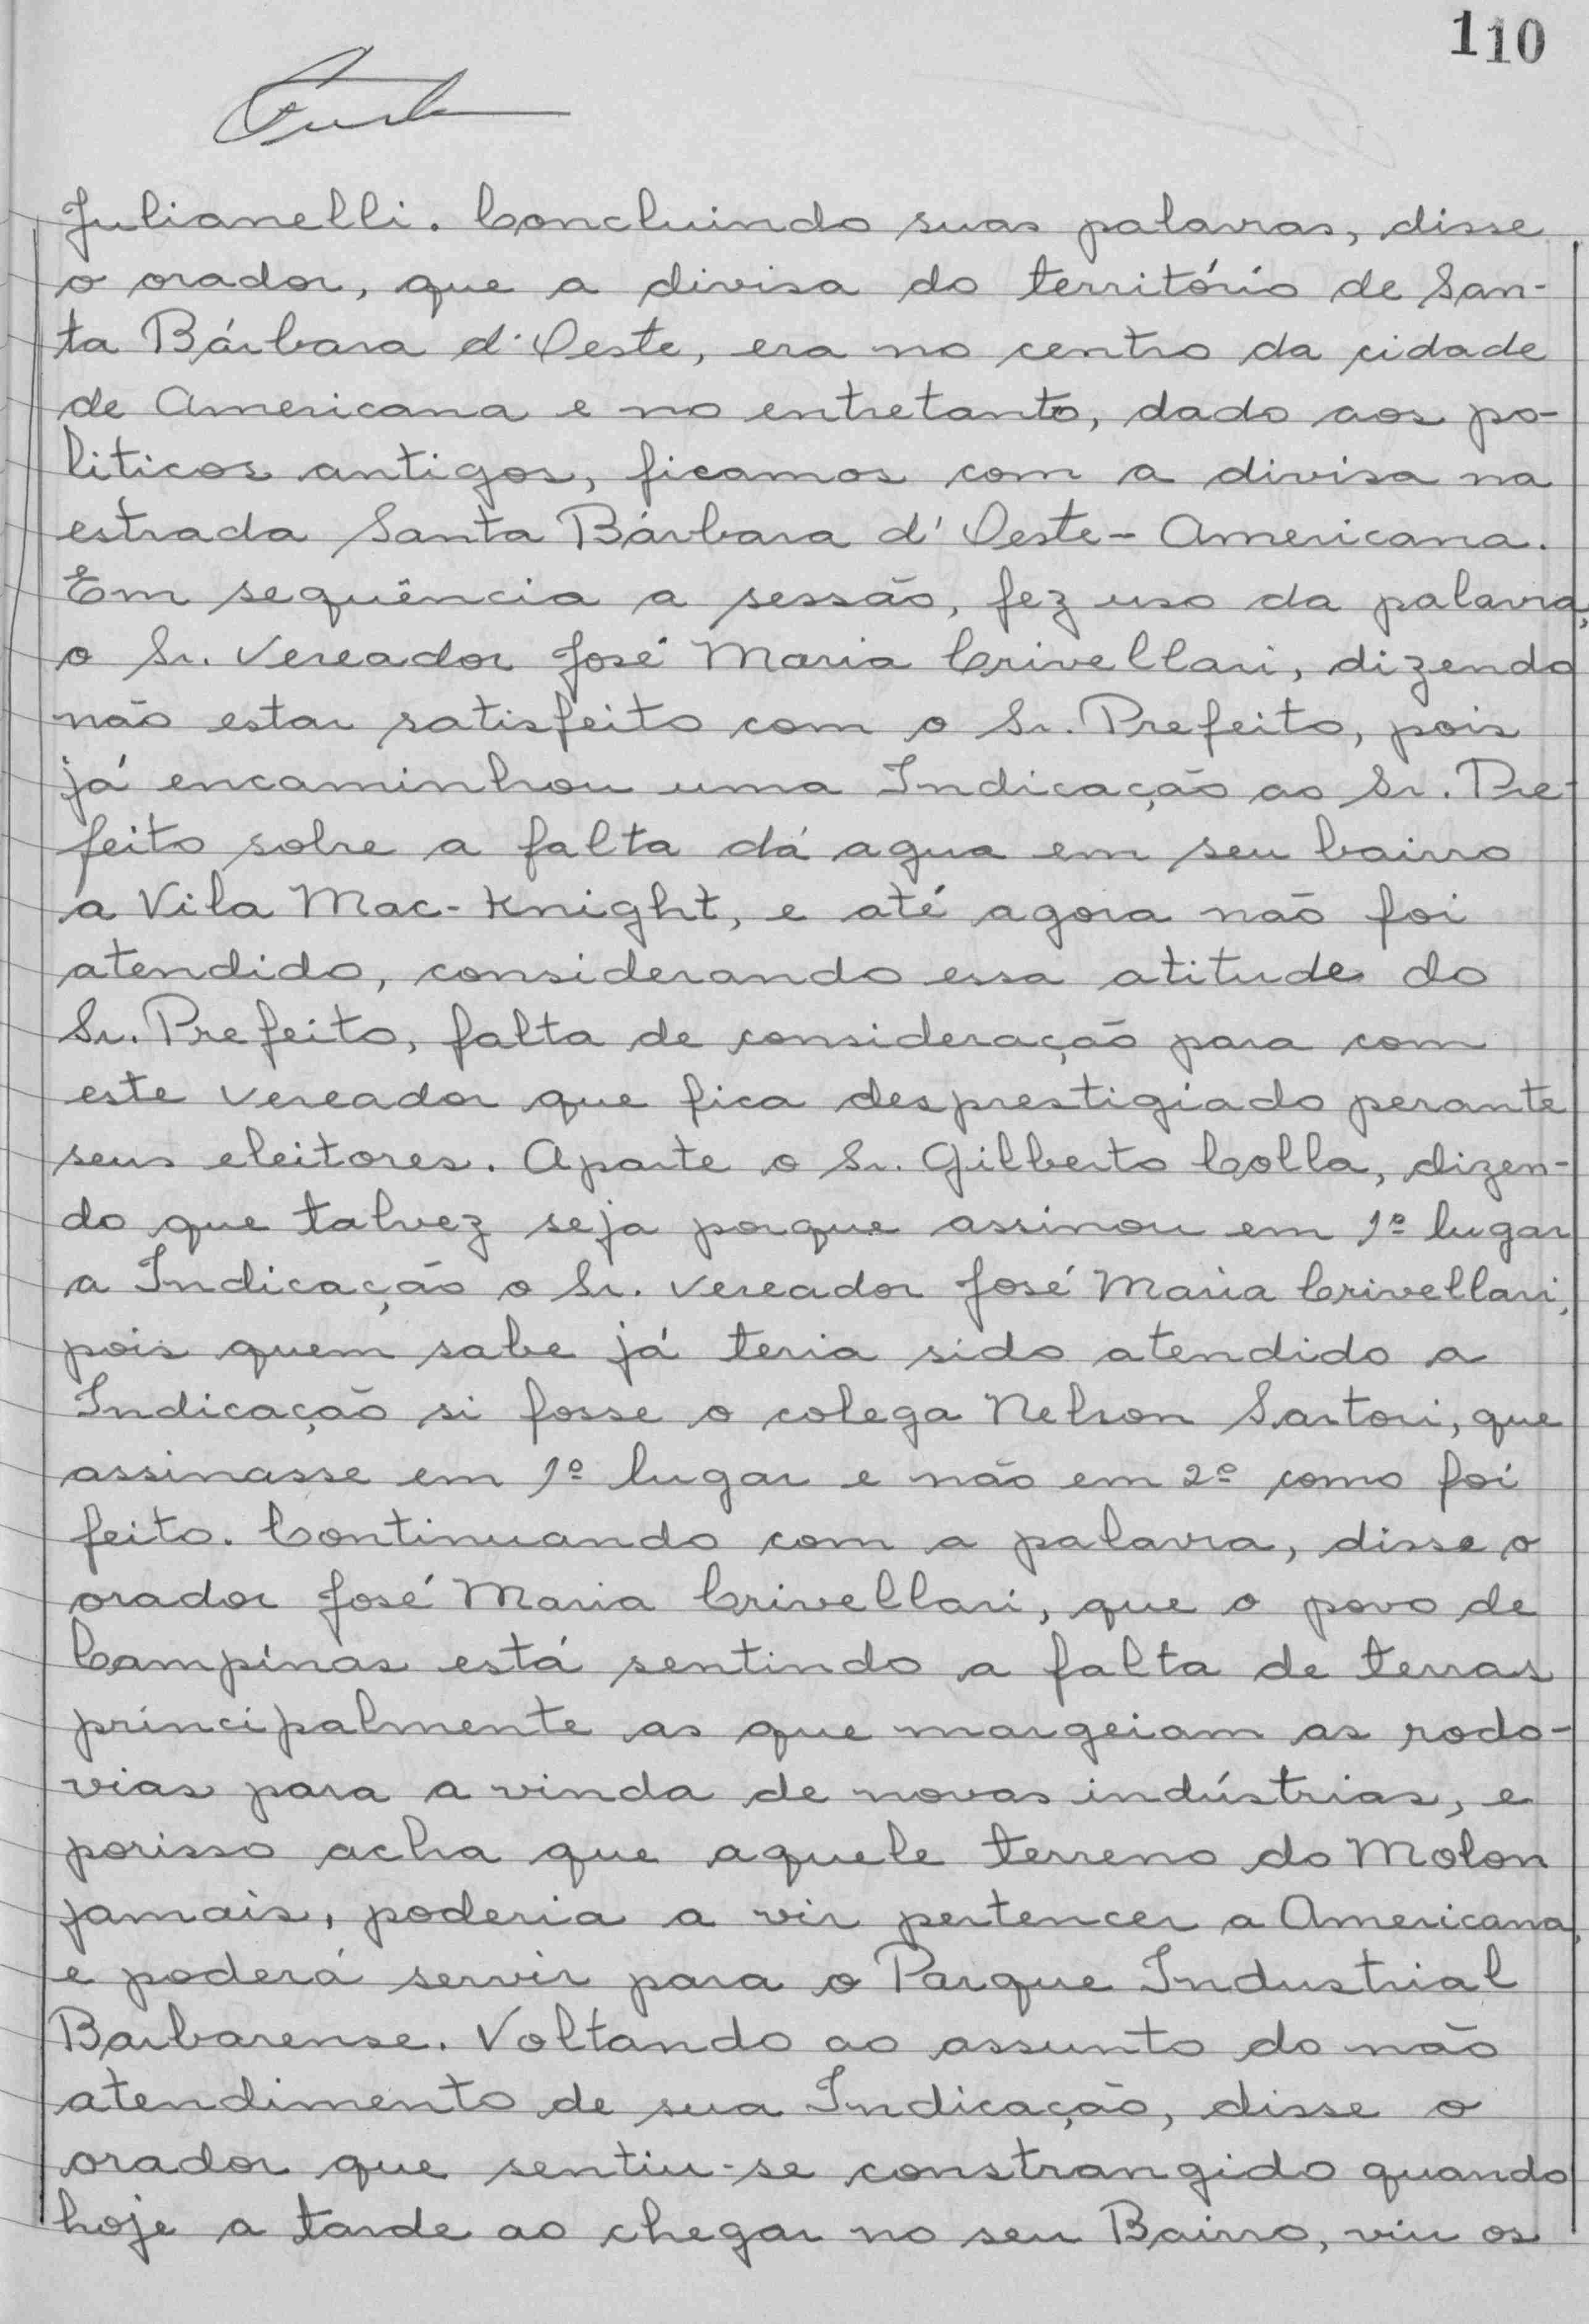 110
Julianelli. Concluindo suas palavras, disse
o orador, que a divisa do território de San-
ta Bárbara d'Oeste, era no centro da cidade
de Americana e no entretanto, dado aos po-
liticos antigos, ficamos com a divisa na
estrada Santa Bárbara d'Oeste - Americana.
Em sequência a sessão, fez uso da palavra,
o Sr. Vereador José Maria Crivellari, dizendo
não estar satisfeito com o Sr. Prefeito, pois
já encaminhou uma Indicação ao Sr. Pre-
feito sobre a falta dá agua em seu bairro
a Vila Mac-Knight, e até agora não foi
atendido, considerando essa atitude do
Sr. Prefeito, falta de consideração para com
este vereador que fica desprestigiado perante
seus eleitores. Aparte o Sr. Gilberto Colla, dizen-
do que talvez seja porque assinou em 1º lugar
a Indicação o Sr. vereador José Maria Crivellari,
pois quem sabe já teria sido atendido a
Indicação si fosse o colega Nelson Sartori, que
assinasse em 1º lugar e não em 2º como foi
feito. Continuando com a palavra, disse o
orador José Maria Crivellari, que o povo de
Campinas está sentindo a falta de terras
principalmente as que margeiam as rodo-
vias para a vinda de novas indústrias, e
porisso acha que aquele terreno do Molon
jamais, poderia a vir pertencer a Americana,
e poderá servir para o Parque Industrial
Barbarense. Voltando ao assunto do não
atendimento de sua Indicação, disse o
orador que sentiu-se constrangido quando
hoje a tarde ao chegar no seu Bairro, viu os